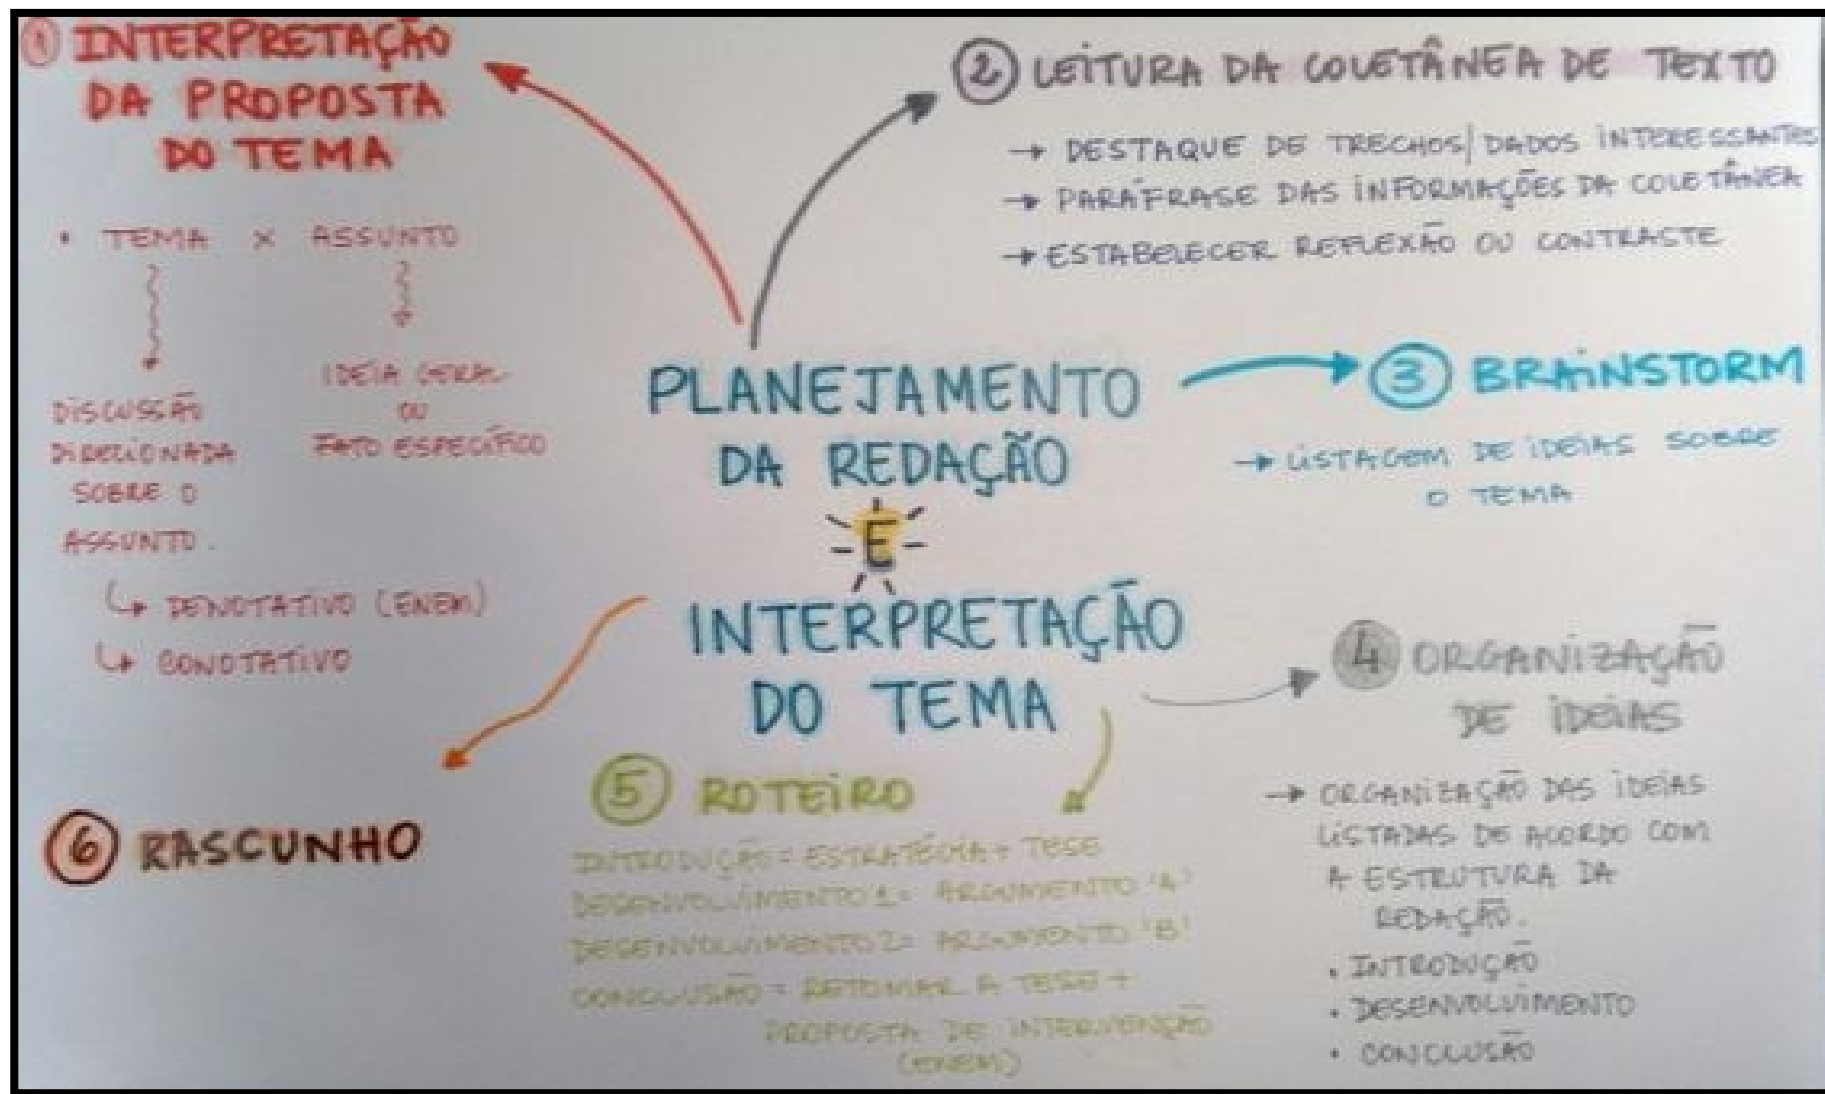 PLANEJAMENTO
DA REDAÇÃO
E
INTERPRETAÇÃO
DO TEMA
1 INTERPRETAÇÃO
DA PROPOSTA
DO TEMA
• TEMA X ASSUNTO
DISCUSSÃO
DIRECIONADA
SOBRE O
ASSUNTO.
IDEIA GERAL
OU
FATO ESPECÍFICO
↳ DENOTATIVO (ENEM)
↳ CONOTATIVO
2 LEITURA DA COLETÂNEA DE TEXTO
→ DESTAQUE DE TRECHOS/DADOS INTERESSANTES
→ PARÁFRASE DAS INFORMAÇÕES DA COLETÂNEA
→ ESTABELECER REFLEXÃO OU CONTRASTE
3 BRAINSTORM
→ LISTAGEM DE IDEIAS SOBRE
O TEMA
4 ORGANIZAÇÃO
DE IDEIAS
→ ORGANIZAÇÃO DAS IDEIAS
LISTADAS DE ACORDO COM
A ESTRUTURA DA
REDAÇÃO.
• INTRODUÇÃO
• DESENVOLVIMENTO
• CONCLUSÃO
5 ROTEIRO
INTRODUÇÃO = ESTRATÉGIA + TESE
DESENVOLVIMENTO 1 = ARGUMENTO 'A'
DESENVOLVIMENTO 2 = ARGUMENTO 'B'
CONCLUSÃO = RETOMAR A TESE +
PROPOSTA DE INTERVENÇÃO
(ENEM)
6 RASCUNHO